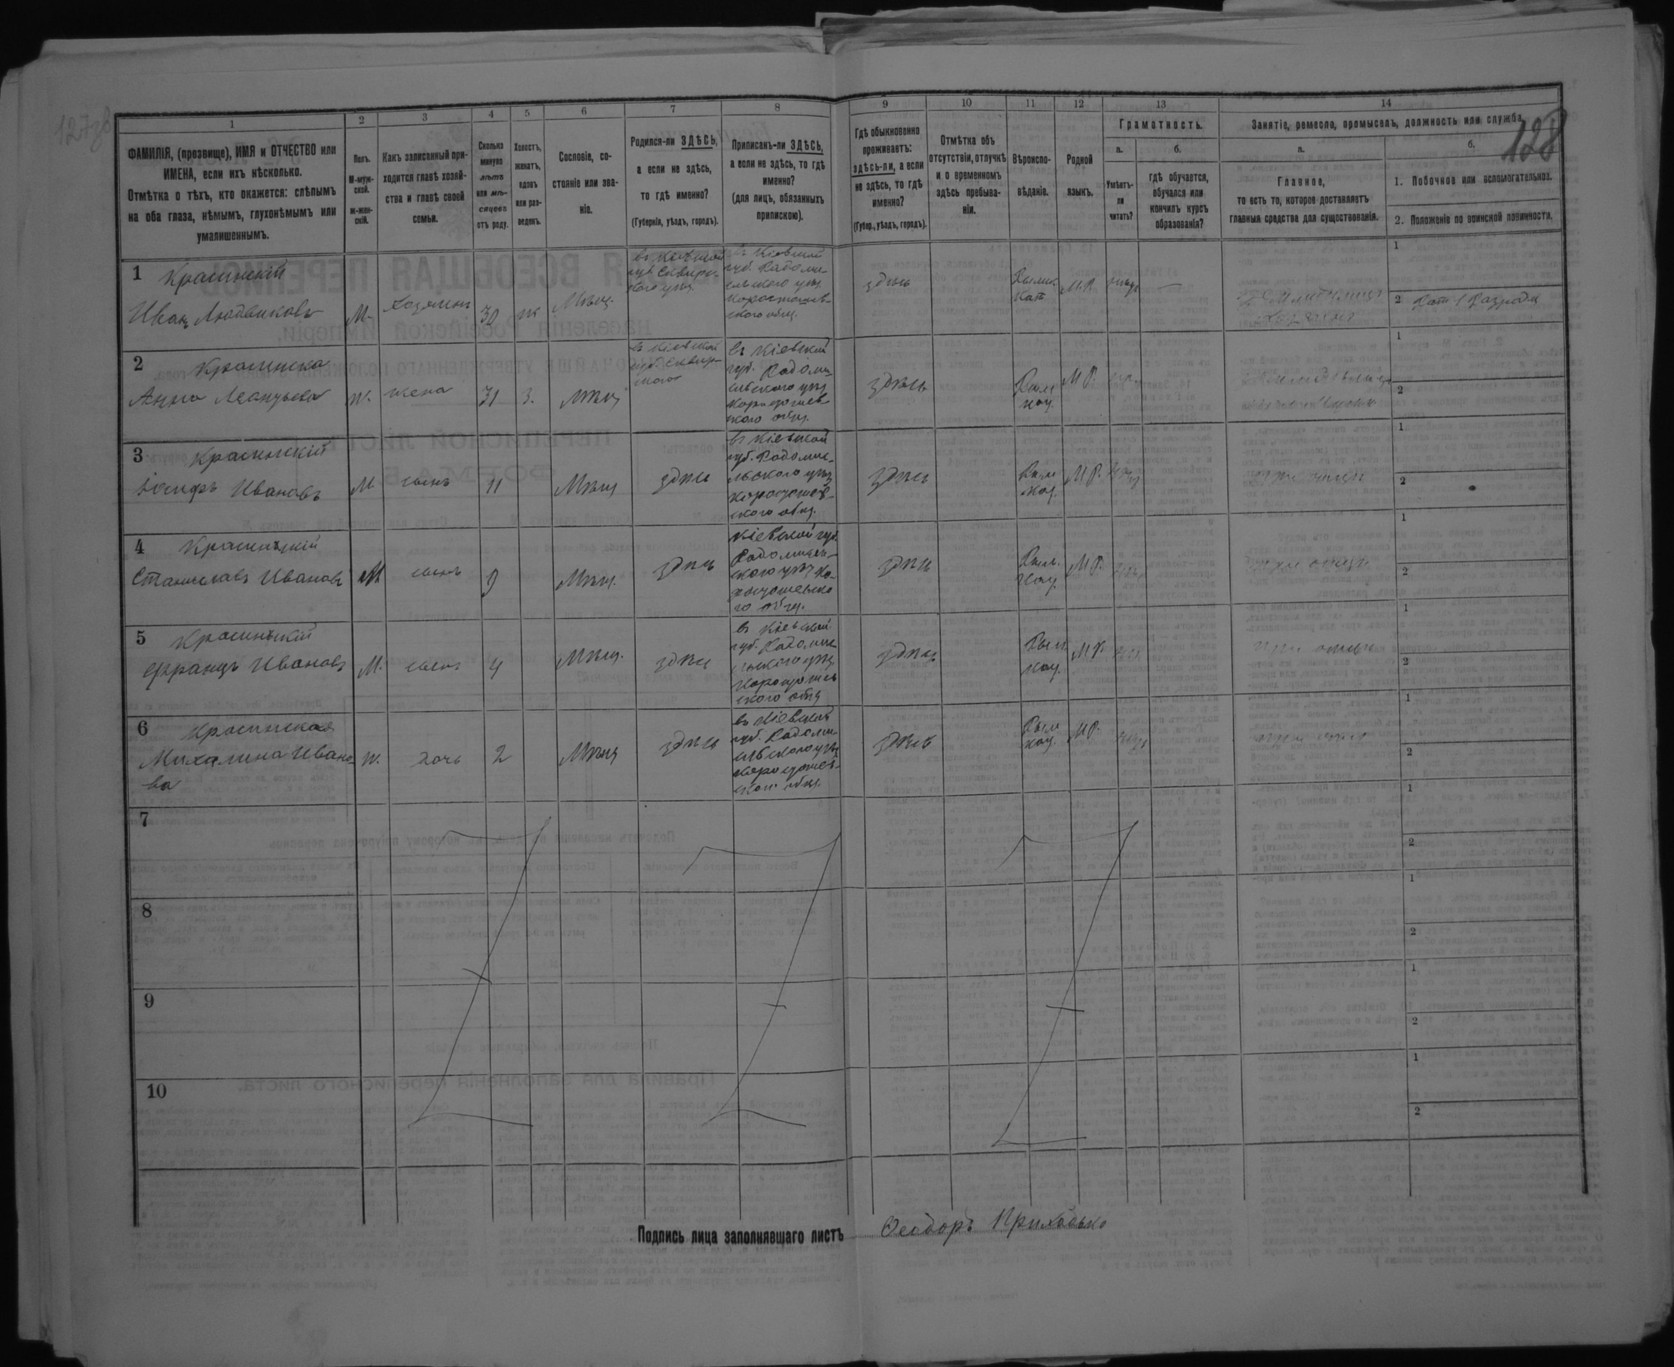 128
1
2
3
4
5
6
7
8
9
10
11
12
13
14
ФАМИЛІЯ, (прозвище), ИМЯ и ОТЧЕСТВО или
ИМЕНА, если ихъ нѣсколько.
Отмѣтка о тѣхъ, кто окажется: слѣпымъ
на оба глаза, нѣмымъ, глухонѣмымъ или
умалишеннымъ.
Полъ.
М-муж-
ской.
ж-жен-
скій.
Какъ записанный при-
ходится главѣ хозяй-
ства и главѣ своей
семьи.
Сколько
минуло
лѣтъ
или мѣ-
сяцевъ
отъ роду.
Холостъ,
женатъ,
вдовъ
или раз-
веденъ.
Сословіе, со-
стояніе или зва-
ніе.
Родился-ли ЗДѢСЬ,
а если не здѣсь,
то гдѣ именно?
(Губернія, уѣздъ, городъ).
Приписанъ-ли ЗДѢСЬ,
а если не здѣсь, то гдѣ
именно?
(для лицъ, обязанныхъ
припискою).
Гдѣ обыкновенно
проживаетъ:
здѣсь-ли, а если
не здѣсь, то гдѣ
именно?
(Губер., уѣздъ, городъ).
Отмѣтка объ
отсутствіи, отлучкѣ
и о временномъ
здѣсь пребыва-
ніи.
Вѣроиспо-
вѣданіе.
Родной
языкъ.
Грамотность.
а.
Умѣетъ-
ли
читать?
б.
гдѣ обучается,
обучался или
кончилъ курсъ
образованія?
Занятіе, ремесло, промыселъ, должность или служба.
а.
Главное,
то есть то, которое доставляетъ
главныя средства для существованія.
б.
1. Побочное или вспомогательное.
2. Положеніе по воинской повинности.
1 Красинскій
Иванъ Людвиковъ
М.
хозяинъ
30
ж
Мѣщ.
въ Кіевской
губ. Сквирс-
кого уѣз
въ Кіевской
губ. Радомы-
сльского уѣз
Коростышев-
ского общ.
здѣсь
Римс.
Кат
М.Р.
—
1
2 Рат. 1 Разряда
2 Красинска
Анна Леонтьева
ж.
жена
31
з.
Мѣщ
въ Кіевской
губ. Сквир-
ского
въ Кіевской
губ. Радомы
сльского уѣз
Коростышев
ского общ.
здѣсь
М Р.
1
2
3 Красинскій
Іосифъ Ивановъ
М
сынъ
11
Мѣщ
здѣсь
въ Кіевской
губ. Радомыс-
льского уѣз
Коростышев-
ского общ.
здѣсь
М Р.
при отцѣ
1
2
4 Красинскій
Станиславъ Ивановъ
М
сынъ
9
Мѣщ.
здѣсь
Кіевской губ.
Радомысль-
ского уѣз Ко-
ростышевско
го общ.
здѣсь
М Р.
при отцѣ
1
2
5 Красинскій
Францъ Ивановъ
М.
сынъ
4
Мѣщ.
здѣсь
въ Кіевской
губ. Радомыс
льского уѣз
Коростышев
ского общ
здѣсь
М Р.
при отцѣ
1
2
6 Красинская
Михалина Ивано
ва
ж.
дочь
2
Мѣщ
здѣсь
въ Кіевской
губ. Радомы
сльского уѣз
Коростышев-
ского общ.
здѣсь
М Р.
при отцѣ
1
2
7
1
2
8
1
2
9
1
2
10
1
2
Подпись лица заполнявшаго листъ Ѳеодоръ Приходько